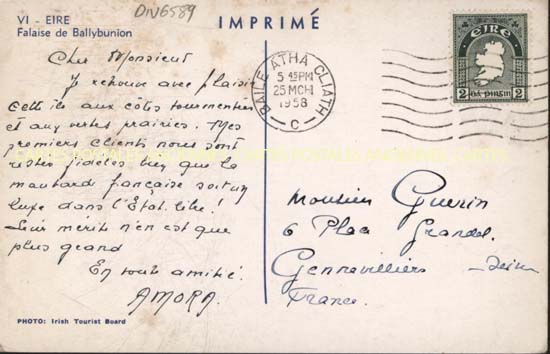 DIV6589
VI - EIRE
Falaise de Ballybunion
IMPRIMÉ
Cher Monsieur
Je retrouve avec plaisir
cette île aux côtes tourmentées
et aux vertes prairies. Mes
premiers clients nous sont
restés fidèles bien que la
moutarde française soit un
luxe dans l'État libre!
Leur mérite n'en est que
plus grand
En toute amitié.
AMORA.
PHOTO: Irish Tourist Board
BAILE ÁTHA CLIATH
5 45PM
25 MCH
1958
C
EIRE
2 2
Monsieur Guerin
6 Place Grandel
Gennevilliers
Seine
France.